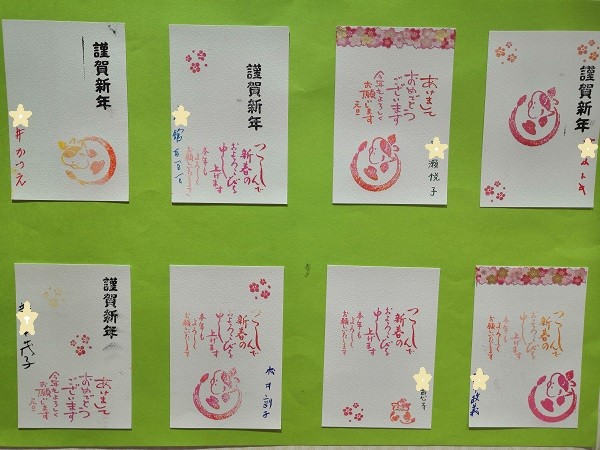 謹賀新年
井かつえ
謹賀新年
つつしんで
新春の
およろこびを
申し上げます
本年も
よろしく
お願いいたします
あけまして
おめでとう
ございます
今年もよろしく
お願いします
元旦
瀬悦子
謹賀新年
謹賀新年
茂子
あけまして
おめでとう
ございます
今年もよろしく
お願いします
元旦
つつしんで
新春の
およろこびを
申し上げます
本年も
よろしく
お願いいたします
つつしんで
新春の
およろこびを
申し上げます
本年も
よろしく
お願いいたします
恵子
つつしんで
新春の
およろこびを
申し上げます
本年も
よろしく
お願いいたします